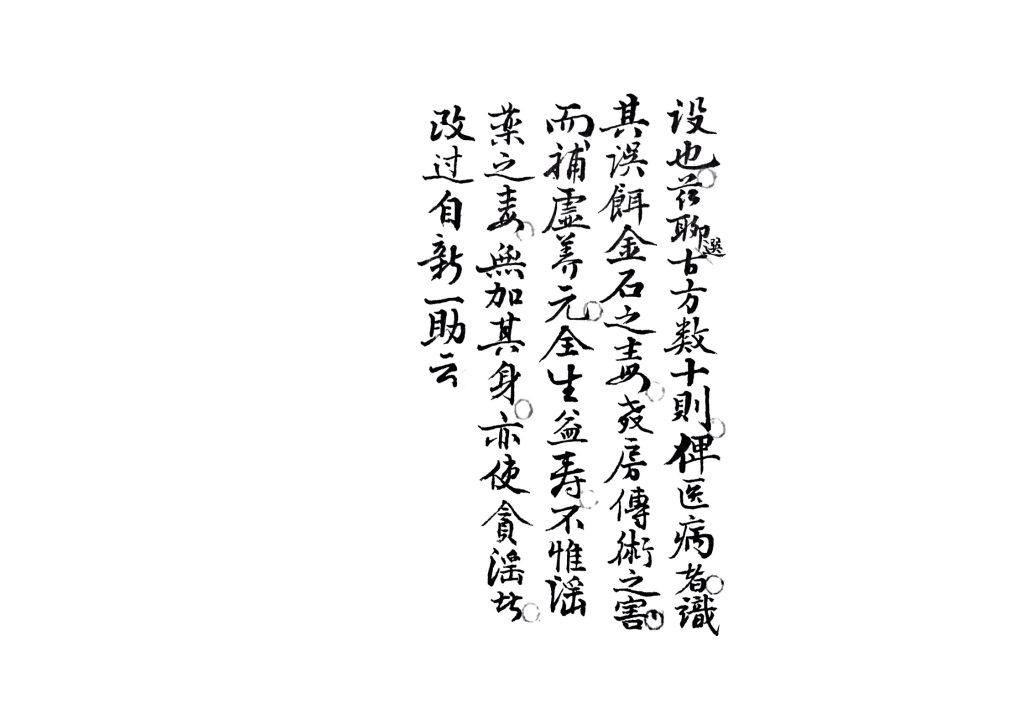 设也。茲聊選古方数十則。俾医病者。識
其误餌金石之毒。房傳術之害。
而補虛养元。全生益寿。不惟滛
薬之毒。無加其身。亦使貪滛者。
改过自新一助云